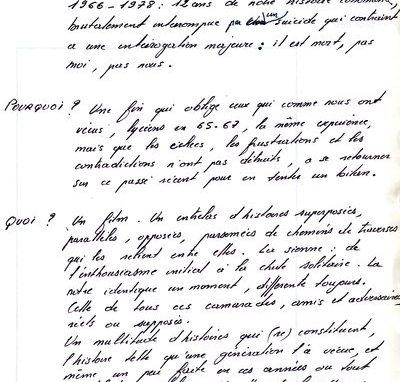 1966-1978 : 12 ans de notre histoire commune,
brutalement interrompue par un suicide qui contraint
a une interrogation majeure : il est mort, pas
moi, pas nous.
POURQUOI ? Une fin qui oblige ceux qui comme nous ont
vécu, lycéens en 65-67, la même expérience,
mais que les échecs, les frustrations et les
contradictions n'ont pas détruits, a se retourner
sur ce passé récent pour en tenter un bilan.
QUOI ? Un film. Un entrelas d'histoires superposées,
parallèles, opposées, parsemées de chemins de traverses
qui les relient entre elles. La sienne : de
l'enthousiasme initial à la chute solitaire. La
notre identique un moment, différente toujours.
Celle de tous ces camarades, amis et adversaires,
réels ou supposés.
Un multitude d'histoires qui (re) constituent,
l'histoire telle qu'une génération l'a vécue, et
même un peu faite en ces années ou tout